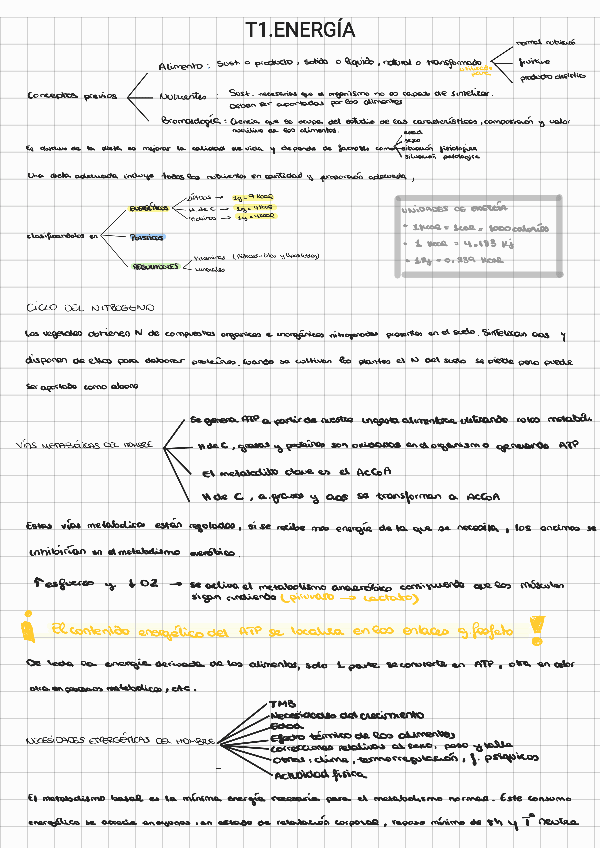 T1.ENERGÍA
Alimento: Sust o producto, solido o liquido, natural o transformado
normal nutrición
fruitivo
producto dietetico
Conceptos previos
Nutrientes: Sust. necesarias que el organismo no es capaz de sintetizar.
Deben ser aportadas por los alimentos
Bromatología: Ciencia que se ocupa del estudio de las características, composición y valor
nutritivo de los alimentos.
El objetivo de la dieta es mejorar la calidad de vida y depende de factores como
edad
sexo
situación fisiologica
situación patologica
Una dieta adecuada incluye todos los nutrientes en cantidad y proporción adecuada,
clasificandolos en
ENERGÉTICOS
1g = 9 Kcal
H de C → 1g = 4 Kcal
Proteinas → 1g = 4 Kcal
Plasticos
REGULADORES
Vitaminas
minerales
UNIDADES DE ENERGÍA
* 1 Kcal = 1 Cal = 1000 calorías
* 1 Kcal = 4.183 Kj
* 1 Kj = 0.239 Kcal
CICLO DEL NITROGENO
Los vegetales obtienen N de compuestos organicos e inorgánicos nitrogenados presentes en el suelo. Sintetizan aas y
disponen de ellos para elaborar proteínas. Cuando se cultivan las plantas el N del suelo se pierde pero puede
ser aportado como abono
VÍAS METABÓLICAS DEL HOMBRE
Se genera ATP a partir de nuestra ingesta alimentaria utilizando rutas metabóli
H de C, grasas y proteínas son oxidadas en el organismo generando ATP
El metabolito clave es el AcCoA
H de C, a.grasos y aas se transforman a AcCoA
Estas vías metabolicas están reguladas, si se recibe mas energía de la que se necesita, las encimas se
inhibirían en el metabolismo aeróbico.
↑ esfuerzo y ↓ O2 → se activa el metabolismo anaeróbico consiguiendo que los músculos
sigan rindiendo (piruvato → lactato)
¡ El contenido energético del ATP se localiza en los enlaces g. fosfato !
De toda la energía derivada de los alimentos, solo 1 parte se convierte en ATP, otra en calor
otra en procesos metabolicos, etc.
NECESIDADES ENERGÉTICAS DEL HOMBRE
TMB
Necesidades del crecimiento
Edad
Efecto térmico de los alimentos
correcciones relativas al sexo, peso y talla
Otras: clima, termorregulación, f. psiquicos
Actividad física
El metabolismo basal es la mínima energía necesaria para el metabolismo normal. Este consumo
energético se asocia en ayunas, en estado de relajación corporal, reposo mínimo de 8h y Tª neutra